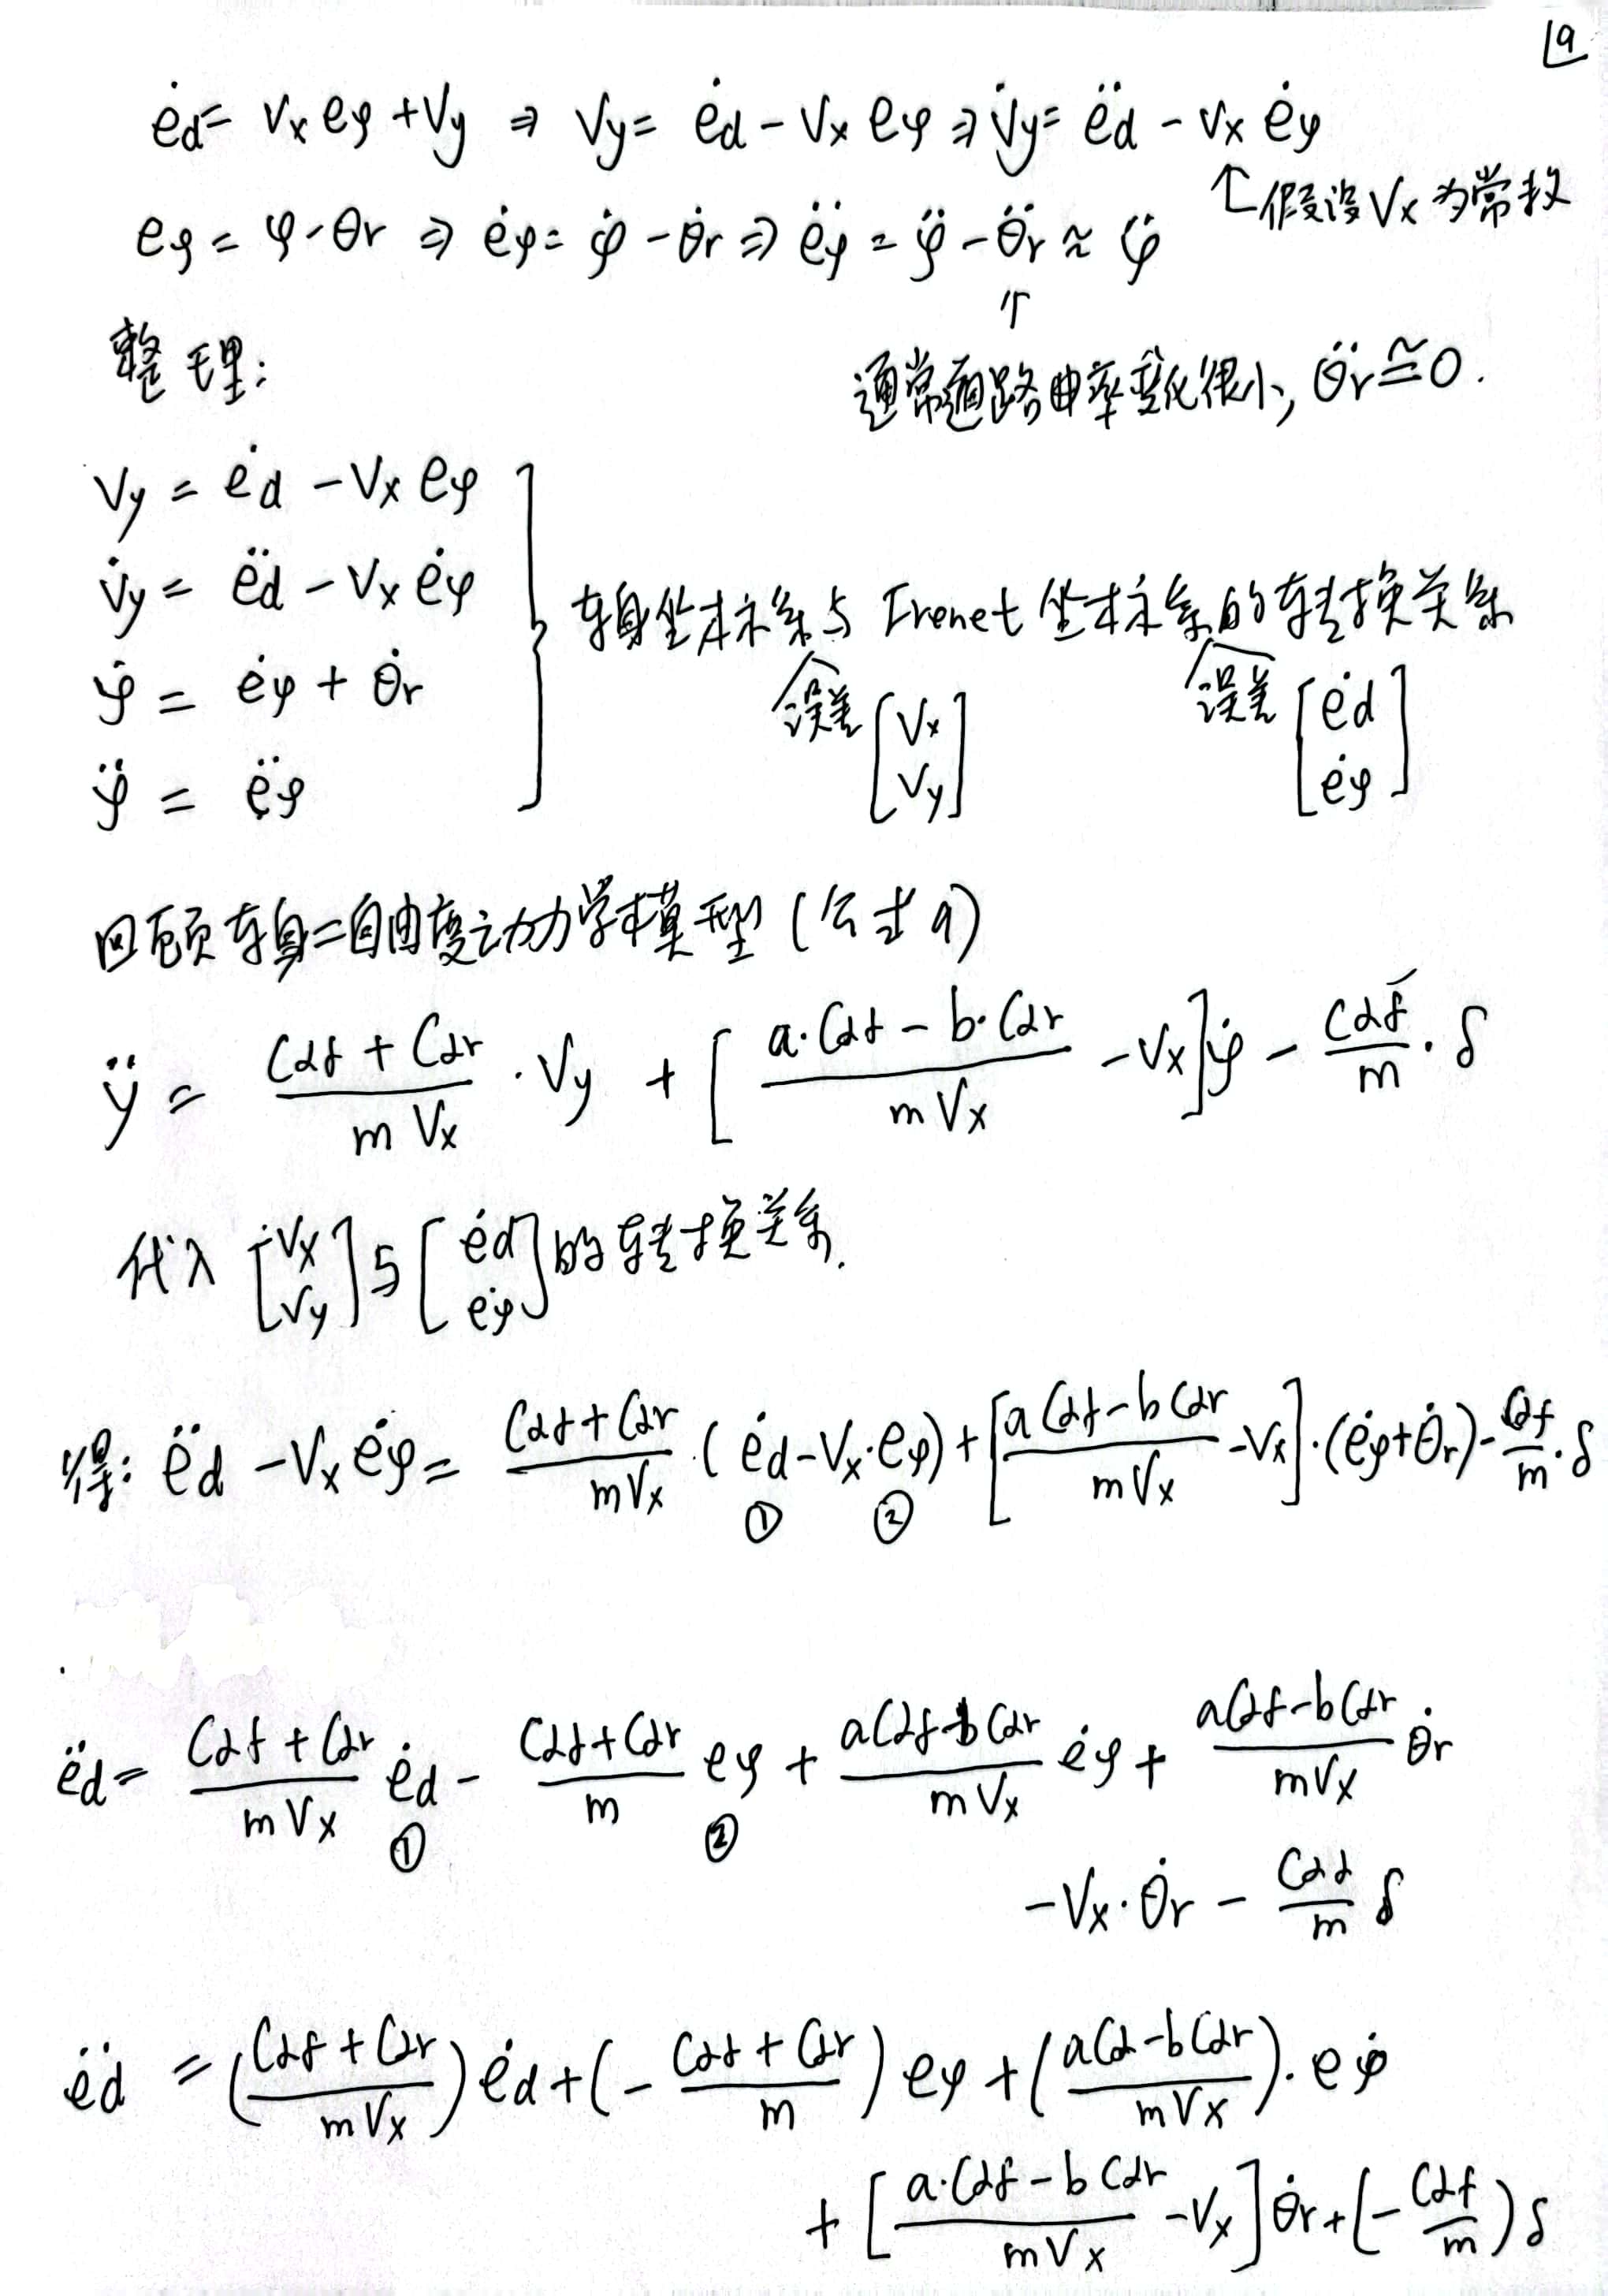 19
ėd = Vx eφ + Vy ⇒ Vy = ėd - Vx eφ ⇒ V̇y = ëd - Vx ėφ
↑假设Vx为常数
eφ = φ - θr ⇒ ėφ = φ̇ - θ̇r ⇒ ëφ = φ̈ - θ̈r ≈ φ̈
⇑
整理:
通常道路曲率变化很小, θ̈r ≅ 0.
Vy = ėd - Vx eφ
V̇y = ëd - Vx ėφ
φ̇ = ėφ + θ̇r
φ̈ = ëφ
车身坐标系与 Frenet 坐标系的转换关系
误差 [Vx Vy] 误差 [ėd ėφ]
回顾车身二自由度动力学模型 (公式 9)
ÿ = (Cαf + Cαr)/(m Vx) · Vy + [(a·Cαf - b·Cαr)/(m Vx) - Vx] φ̇ - Cαf/m · δ
代入 [Vx Vy] 与 [ėd ėφ] 的转换关系.
得: ëd - Vx ėφ = (Cαf + Cαr)/(mVx) · (ėd - Vx·eφ) + [(a Cαf - b Cαr)/(mVx) - Vx] · (ėφ + θ̇r) - Cαf/m · δ
① ②
ëd = (Cαf + Cαr)/(mVx) ėd - (Cαf + Cαr)/m eφ + (aCαf - bCαr)/(mVx) ėφ + (aCαf - bCαr)/(mVx) θ̇r
① ②
- Vx · θ̇r - Cαf/m δ
ëd = ((Cαf + Cαr)/(mVx)) ėd + (- (Cαf + Cαr)/m) eφ + ((aCα - bCαr)/(mVx)) · eφ̇
+ [(a·Cαf - b Cαr)/(mVx) - Vx] θ̇r + (- Cαf/m) δ